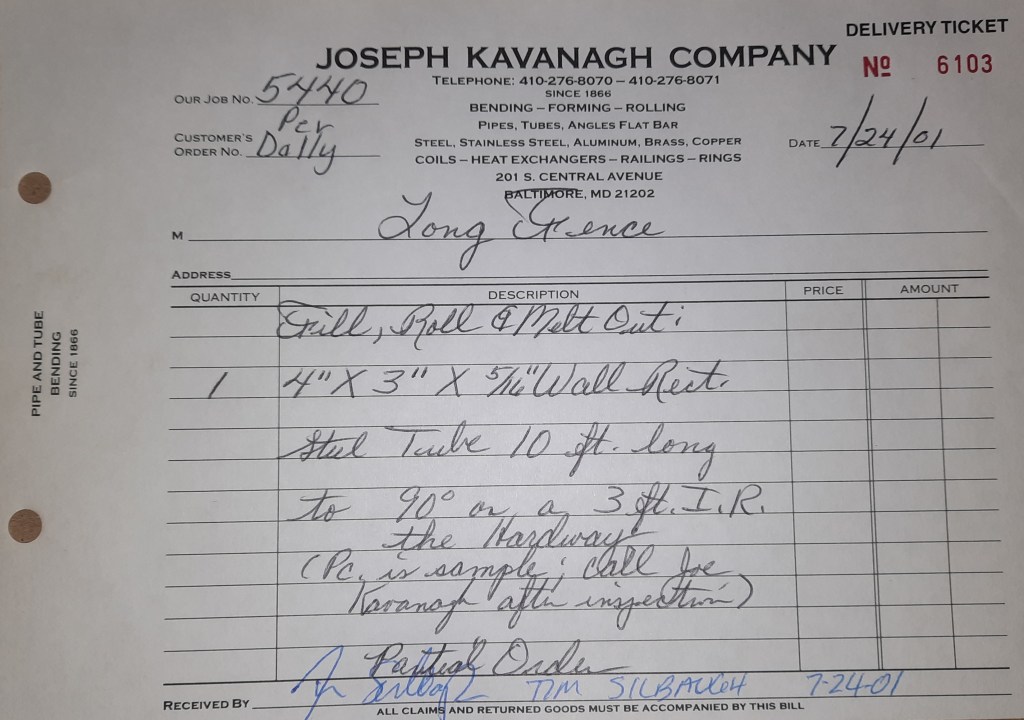 DELIVERY TICKET
JOSEPH KAVANAGH COMPANY
Nº 6103
TELEPHONE: 410-276-8070 – 410-276-8071
SINCE 1866
OUR JOB NO. 5440
BENDING – FORMING – ROLLING
PIPES, TUBES, ANGLES FLAT BAR
CUSTOMER'S ORDER NO. Per Dally
STEEL, STAINLESS STEEL, ALUMINUM, BRASS, COPPER
DATE 7/24/01
COILS – HEAT EXCHANGERS – RAILINGS – RINGS
201 S. CENTRAL AVENUE
BALTIMORE, MD 21202
M Long Fence
ADDRESS
QUANTITY DESCRIPTION PRICE AMOUNT
Fill, Roll & Melt Out:
1 4" X 3" X 5/16" Wall Rect.
Steel Tube 10 ft. long
to 90° on a 3 ft. I.R.
the Hardway
(Pc. is sample; call Joe
Kavanagh after inspection)
Partial Order
TIM SILBAUGH 7-24-01
RECEIVED BY
ALL CLAIMS AND RETURNED GOODS MUST BE ACCOMPANIED BY THIS BILL
PIPE AND TUBE
BENDING
SINCE 1866